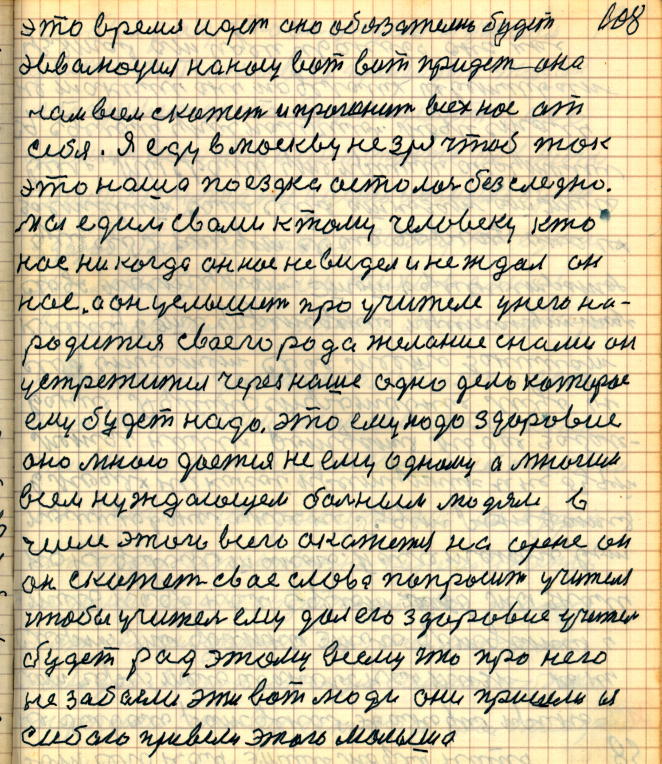 108
это время идет оно обязателнь будет
эввалюция на ногу вот вот придет она
нам всем скажет и прогонит всех нас от
себя. Я еду в москву не зря чтоб так
это наша поездка осталась безследно.
мы едим свами к тому человеку кто
нас никогда он нас не видел и не ждал он
нас. а он услышит про учителе у него на-
родится своего рода желание снами он
устретится через наше одно дело которое
ему будет надо. это ему надо здоровие
оно много дается не ему одному а многим
всем нуждающем болным людям в
числе этого всего окажется на арене он
он скажет свае слова попросит учителя
чтобы учител ему дал его здоровие учител
будет рад этому всему что про него
не забыли эти вот люди они пришли и
ссобою привели этого малыша